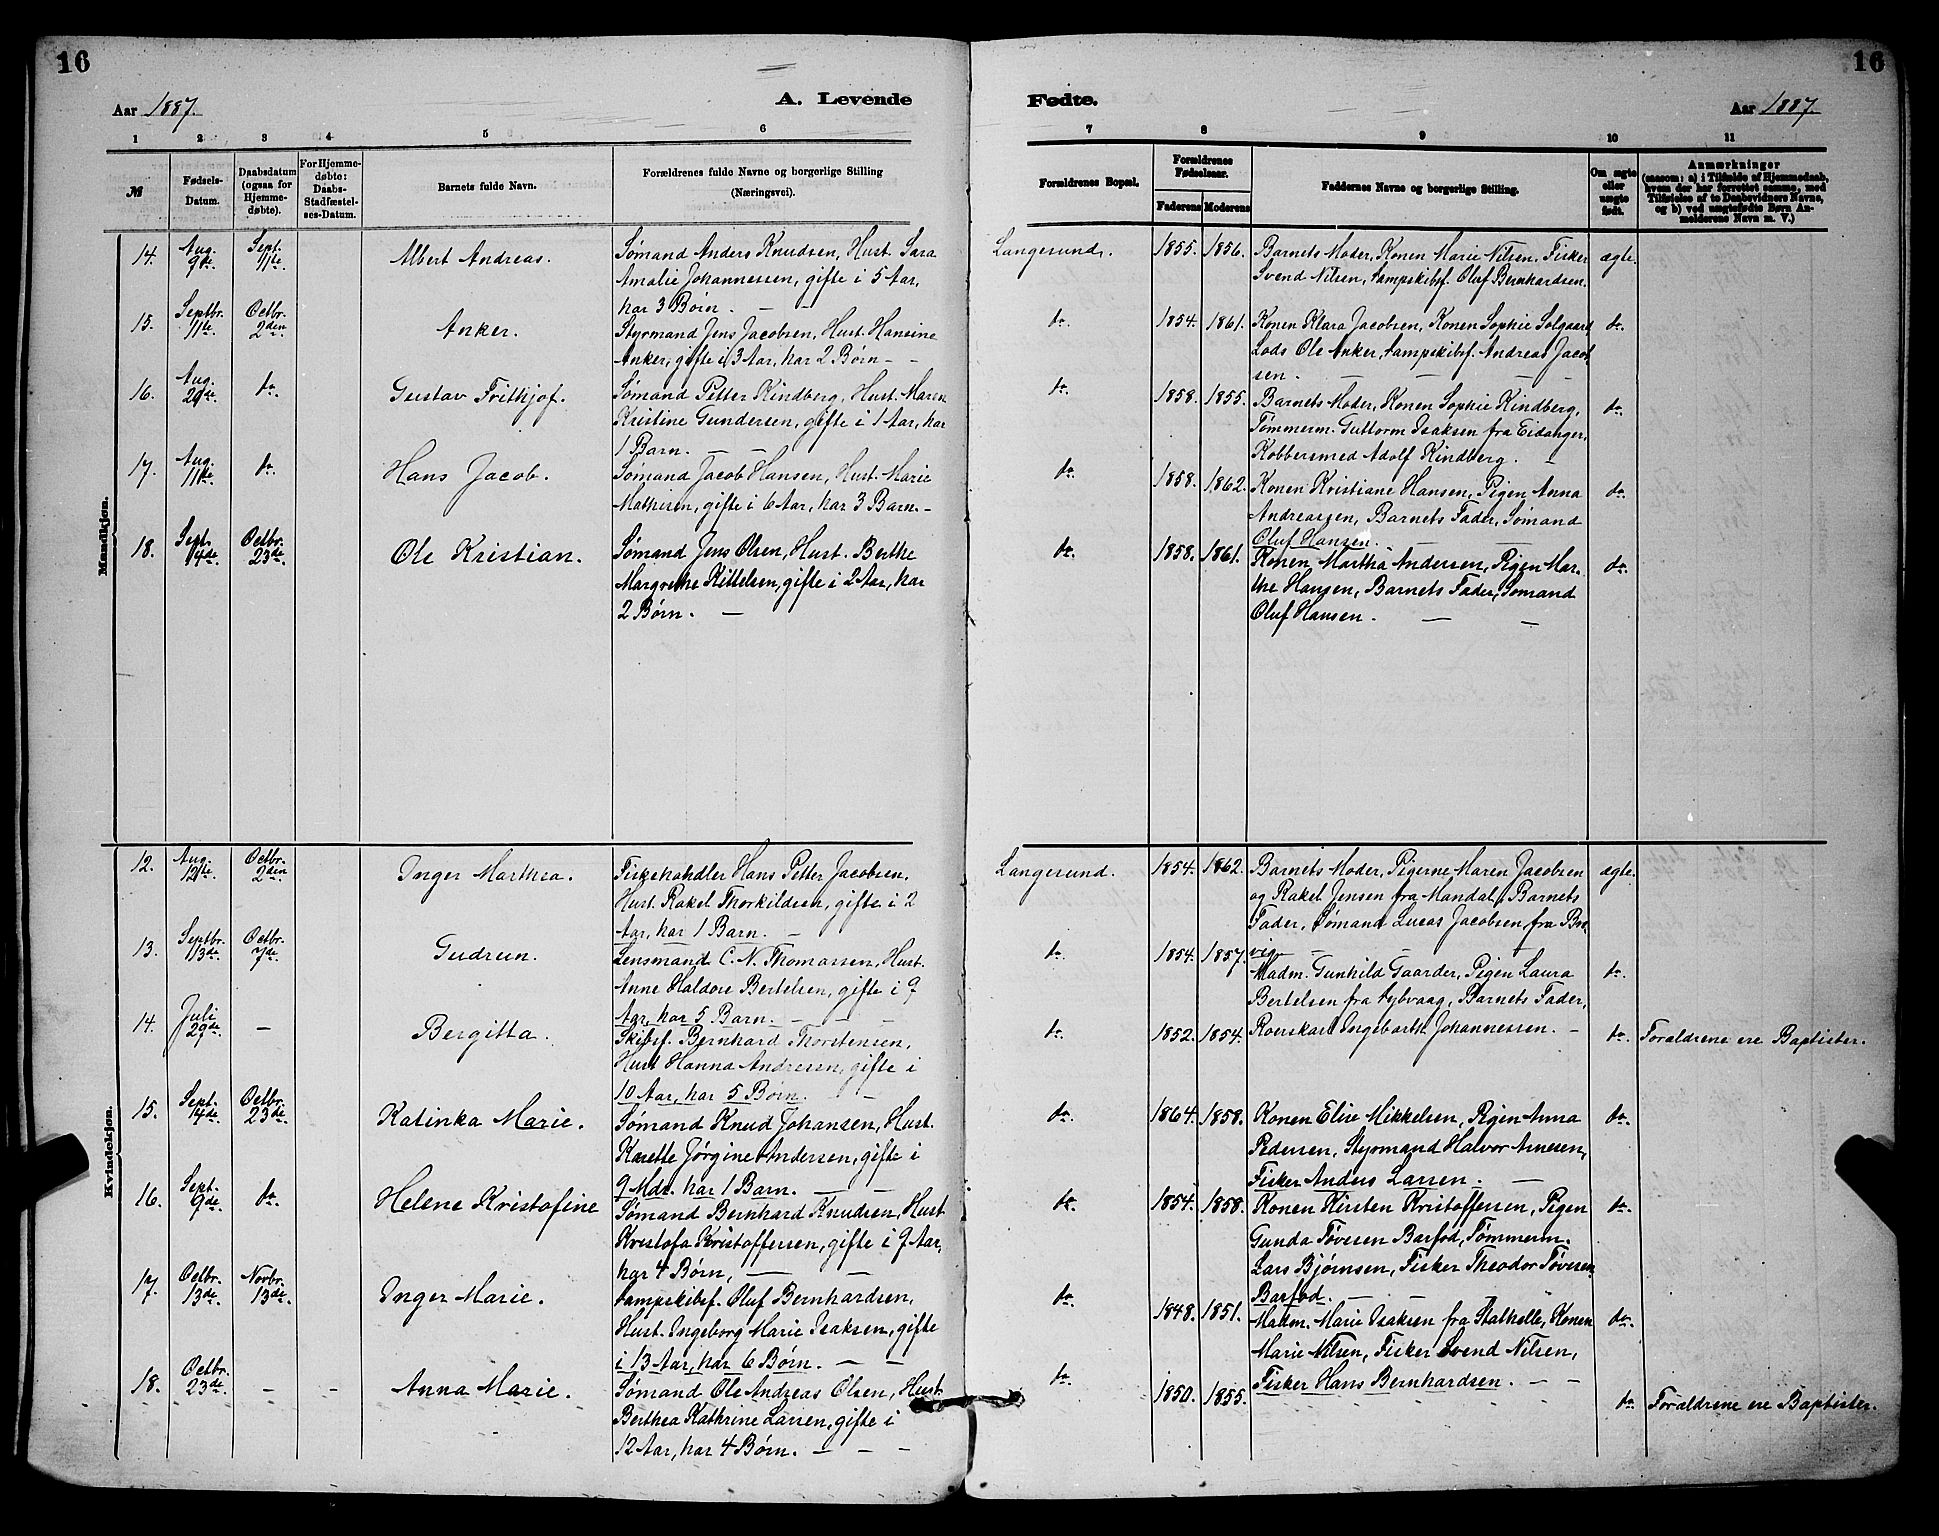 16
16
Aar 1887.
A. Levende
Fødte.
Aar 1887.
1 2 3 4 5 6
7 8 9 10 11
№
Fødsels-
Datum.
Daabsdatum
(ogsaa for
Hjemme-
døbte).
For Hjemme-
døbte:
Daabs-
Stadfæstel-
ses-Datum.
Barnets fulde Navn.
Forældrenes fulde Navne og borgerlige Stilling
(Næringsvei).
Forældrenes Bopæl.
Forældrenes
Fødselsaar.
Faderens
Moderens
Faddernes Navne og borgerlige Stilling.
Om ægte
eller
uægte
født.
Anmærkninger
(saasom: a) i Tilfælde af Hjemmedaab,
hvem der har forrettet samme, med
Tilføielse af to Daabsvidners Navne,
og b) ved uægtefødte Børn An-
melderens Navn m. V.)
Mandkjøn.
14.
Aug.
9de
Sept.
11te
Albert Andreas.
Sømand Anders Knudsen, Hust. Sara
Amalie Johannessen, gifte i 5 Aar,
har 3 Børn. —
Langesund.
1855.
1856.
Barnets Moder, Konen Marie Nilsen, Fisker
Svend Nilsen, Dampskibsf. Oluf Bernhardsen.
ægte.
15.
Septbr.
11te
Octbr.
2den
Anker.
Styrmand Jens Jacobsen, Hust. Hansine
Anker, gifte i 3 Aar, har 2 Børn — —
do.
1854.
1861.
Konen Klara Jacobsen, Konen Sophie Solgaard
Lods Ole Anker, Dampskibsf. Andreas Jacob-
sen. — — —
do.
16.
Aug.
29de
do.
Gustav Frithjof.
Sømand Petter Kindberg, Hust. Maren
Kristine Gundersen, gifte i 1 Aar, har
1 Barn. — —
do.
1858.
1855.
Barnets Moder, Konen Sophie Kindberg,
Tømmerm. Guttorm Isaksen fra Eidanger,
Kobbersmed Adolf Kindberg. —
do.
17.
Aug.
11te
do.
Hans Jacob.
Sømand Jacob Hansen, Hust. Marie
Mathisen, gifte i 6 Aar, har 3 Barn. —
do.
1858.
1862.
Konen Kristiane Hansen, Pigen Anna
Andreassen, Barnets Fader, Sømand
Oluf Hansen. — —
do.
18.
Sept.
14de
Octbr.
23de
Ole Kristian.
Sømand Jens Olsen, Hust. Berthe
Margrethe Kittelsen, gifte i 2 Aar, har
2 Børn. —
do.
1858.
1861.
Konen Martha Andersen, Pigen Mar-
the Hansen, Barnets Fader, Sømand
Oluf Hansen. — —
do.
Kvindekjøn.
12.
Aug.
12te
Octbr.
2den
Inger Marthea.
Fiskehandler Hans Petter Jacobsen,
Hust. Rakel Thorkildsen, gifte i 2
Aar, har 1 Barn. —
Langesund.
1854.
1862.
Barnets Moder, Pigerne Maren Jacobsen
og Rakel Jensen fra Mandal, Barnets
Fader, Sømand Lucas Jacobsen fra Bre-
vig.
ægte.
13.
Septbr.
13de
Octbr.
7de
Gudrun.
Lensmand C. N. Thomassen, Hust.
Anne Haldore Bertelsen, gifte i 9
Aar, har 5 Barn. — — —
do.
1854.
1857.
Madm. Gunhild Gaarder, Pigen Laura
Bertelsen fra Dybvaag, Barnets Fader,
Roerskarl Ingebarth Johannessen. —
do.
14.
Juli
29de
—
Bergitta.
Skibsf. Bernhard Thorstensen,
Hust. Hanna Andresen, gifte i
10 Aar, har 5 Børn. —
do.
1852.
1854.
do.
Forældrene ere Baptister.
15.
Sept.
14de
Octbr.
23de
Katinka Marie.
Sømand Knud Johansen, Hust.
Karette Jørgine Andersen, gifte i
9 Mdr. har 1 Barn. — —
do.
1864.
1858.
Konen Elise Mikkelsen, Pigen Anna
Pedersen, Styrmand Halvor Arnesen,
Fisker Anders Larsen. —
do.
16.
Sept.
9de
do.
Helene Kristofine
Sømand Bernhard Knudsen, Hust.
Kristofa Kristoffersen, gifte i 9 Aar,
har 4 Børn, — —
do.
1854.
1858.
Konen Kirsten Kristoffersen, Pigen
Gunda Tøvesen Barfod, Tømmerm.
Lars Bjørnsen, Fisker Theodor Tøvesen
Barfod. — — —
do.
17.
Octbr.
13de
Novbr.
13de
Inger Marie.
Dampskibsf. Oluf Bernhardsen,
Hust. Ingeborg Marie Isaksen, gifte
i 13 Aar, har 6 Børn. — —
do.
1848.
1851.
Madm. Marie Isaksen fra Stathelle, Konen
Marie Nilsen, Fisker Svend Nilsen,
Fisker Hans Bernhardsen. — —
do.
18.
Octbr.
23de
—
—
Anna Marie.
Sømand Ole Andreas Olsen, Hust.
Berthea Kathrine Larsen, gifte i
12 Aar, har 4 Børn. — — —
do.
1850.
1855.
do.
Forældrene ere Baptister.